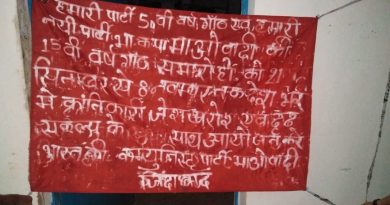 हमारी पार्टी 50वी वर्ष गांठ एवं हमारी
नयी पार्टी भा.क.पा माओवादी की
15वी वर्ष गांठ समारोहों को 21
सितम्बर से 8 नवम्बर तक देश भर
मे क्रांतिकारी जोशखरोश एवं दृढ़
संकल्प के साथ आयोजन करे
कम्युनिस्ट पार्टी माओवादी
जिंदाबाद